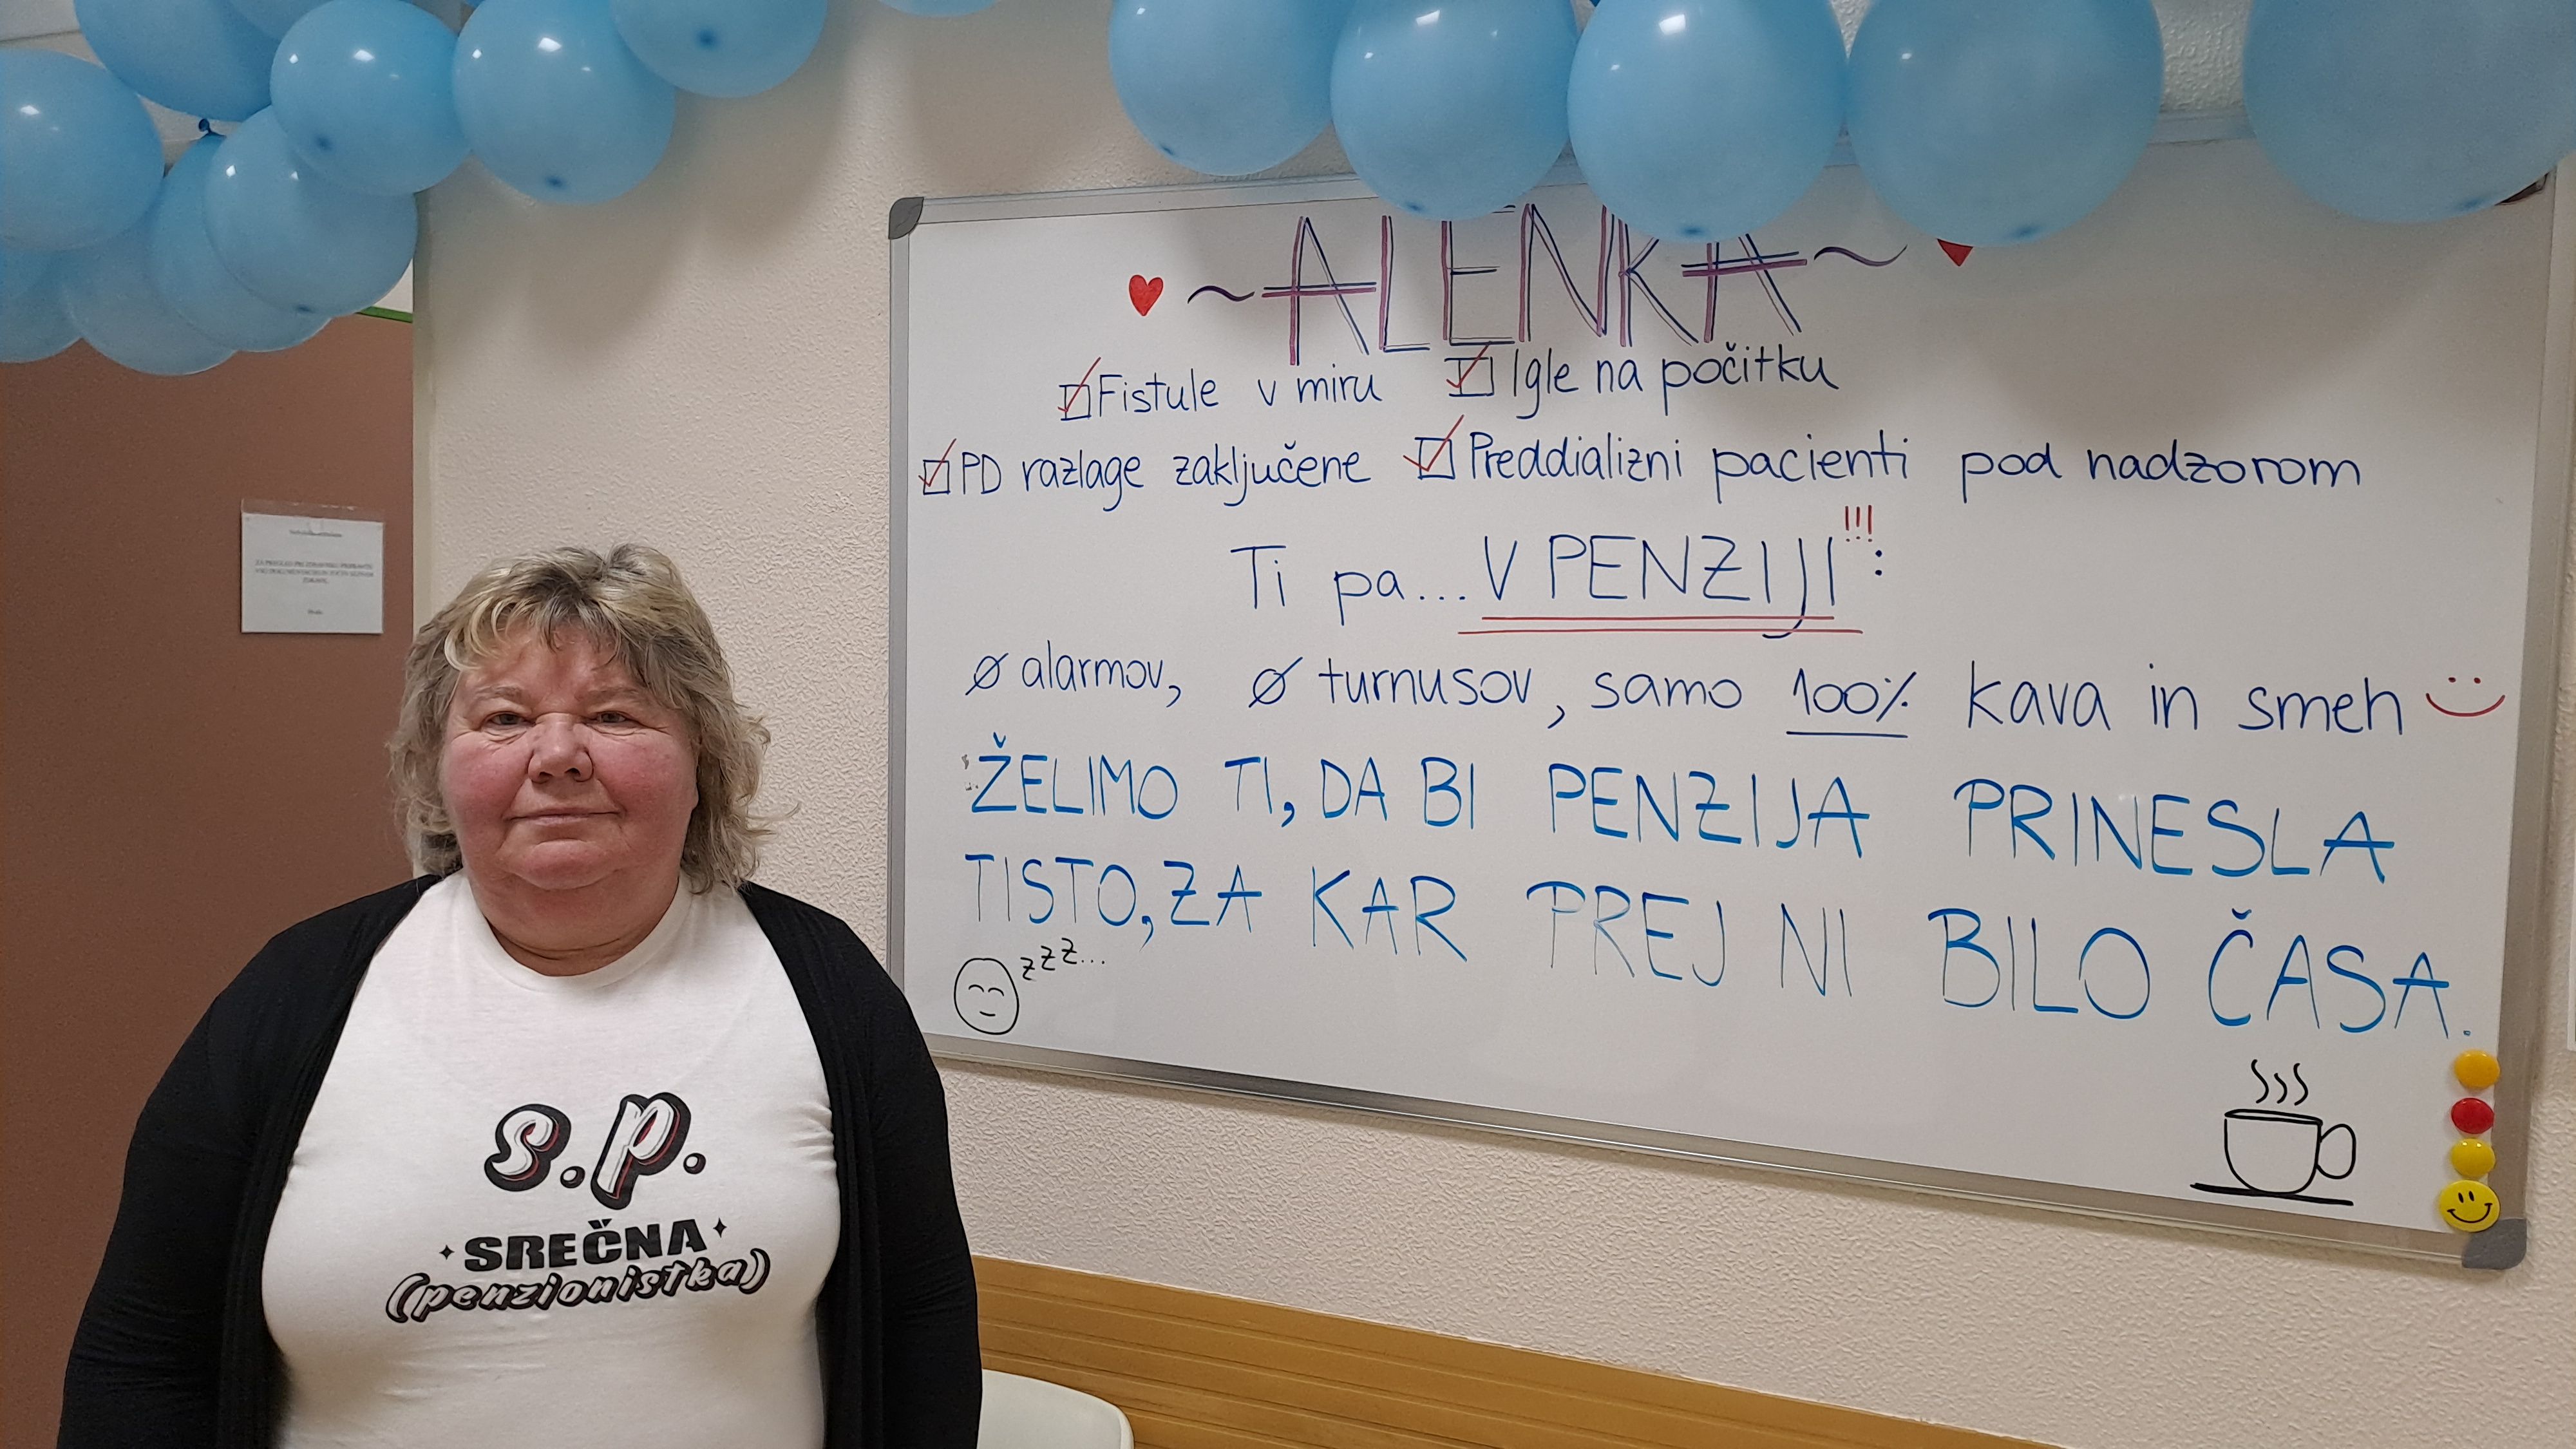 ~ ALENKA ~
☑ Fistule v miru ☑ Igle na počitku
☑ PD razlage zaključene ☑ Preddializni pacienti pod nadzorom
Ti pa... V PENZIJI!!!:
Ø alarmov, Ø turnusov, samo 100% kava in smeh
ŽELIMO TI, DA BI PENZIJA PRINESLA
TISTO, ZA KAR PREJ NI BILO ČASA.
zzz...
s.p.
SREČNA
((penzionistka))